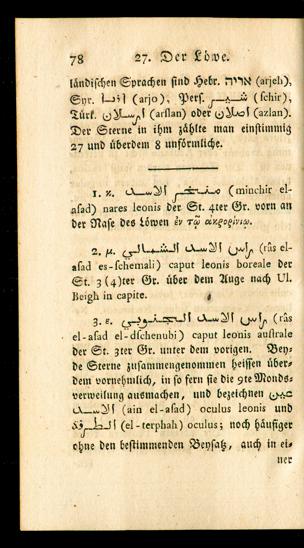 78 27. Der Löwe.
ländischen Sprachen sind Hebr. אריה (arjeh),
Syr. (arjo), Pers. شير (schir),
Türk. ارسلان (arslan) oder اصلان (azlan).
Der Sterne in ihm zählte man einstimmig
27 und überdem 8 unförmliche.
1. κ. منخر الاسد (minchir el-
asad) nares leonis der St. 4ter Gr. vorn an
der Nase des Löwen ἐν τῷ ἀκρορινίῳ.
2. μ. راس الاسد الشمالي (râs el-
asad es-schemali) caput leonis boreale der
St. 3 (4)ter Gr. über dem Auge nach Ul.
Beigh in capite.
3. ε. راس الاسد الجنوبي (râs
el-asad el-dschenubi) caput leonis australe
der St. 3ter Gr. unter dem vorigen. Bey-
de Sterne zusammengenommen heissen über-
dem vornehmlich, in so fern sie die 9te Monds-
verweilung ausmachen, und bezeichnen عين
الاسد (ain el-asad) oculus leonis und
الطرفة (el-terphah) oculus; noch häufiger
ohne den bestimmenden Beysatz, auch in ei-
ner